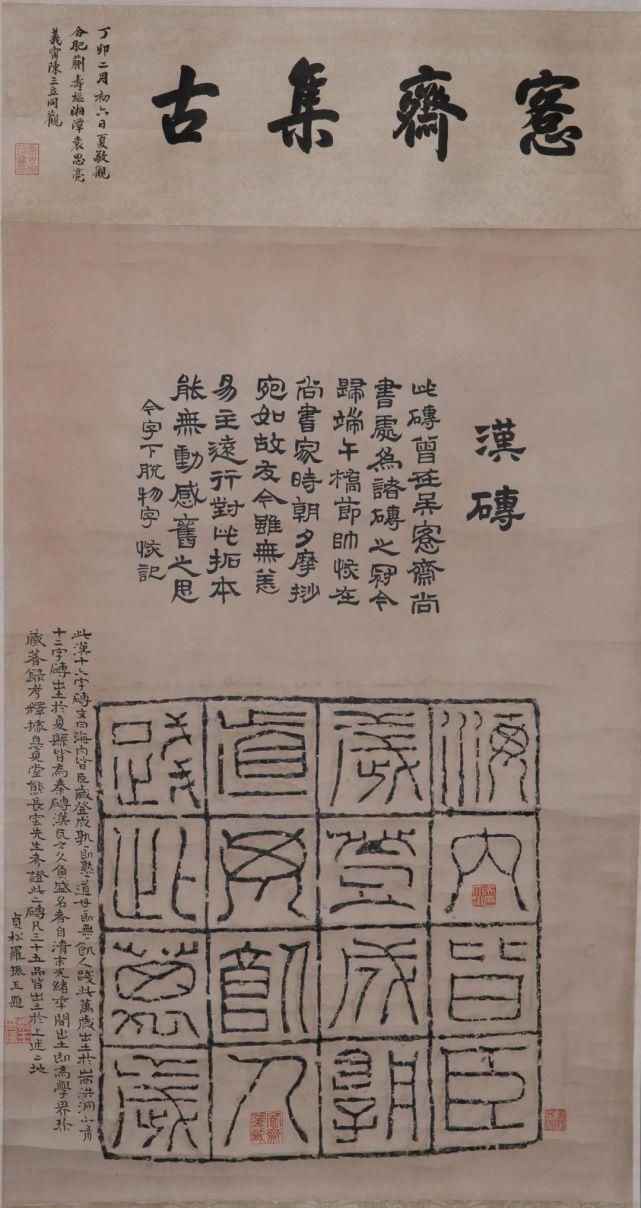 愙齋集古
丁卯二月初六日夏敬觀
合肥蒯壽樞湘潭袁思亮
義甯陳三立同觀
漢磚
此磚曾在吳愙齋尚
書處為諸磚之冠今
歸端午橋節帥惔在
尚書家時朝夕摩挱
宛如故友今雖無恙
易主遠行對此拓本
能無動感舊之思
今字下脫物字 惔記
海內皆臣
歲登成孰
道毋飢人
踐此萬歲
此漢十六字磚文曰海內皆臣歲登成孰即熟道毋即無飢人踐此萬歲出土於山西洪洞
十二字磚出土於夏縣皆為秦磚漢瓦之久負盛名者自清末光緒季間出土即為學界珍
藏著錄考釋據息見堂熊長雲先生考證此二磚凡三十五品皆出土於上述二地
貞松羅振玉題